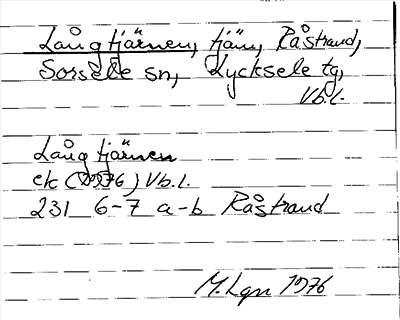 Långtjärnen, tjärn, Råstrand,
Sorsele sn, Lycksele tg,
Vb.l.
Långtjärnen
ek (1976) Vb.l.
231 6-7 a-b Råstrand
M. Lgn 1976